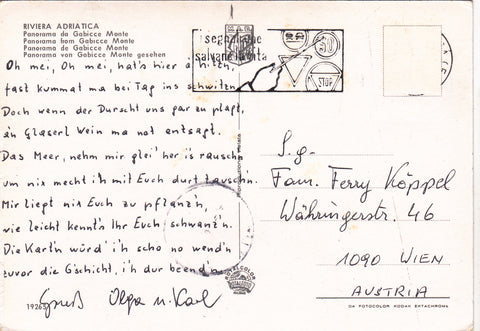 RIVIERA ADRIATICA
Panorama da Gabicce Monte
Panorama from Gabicce Monte
Panorama de Gabicce Monte
Panorama von Gabicce Monte gesehen
Oh mei, Oh mei, hat's hier a Hitzn,
fast kummat ma bei Tag ins schwitzn
Doch wenn der Durscht uns gar zu plagt,
a'n Glaserl Wein ma not entsagt.
Das Meer, nehm mir glei' her is rauschn
um nix mecht i'h mit Euch durt tauschn.
Mir liegt nix Euch zu pflanz'n,
wie leicht kennt's Ihr Euch schwanz'n.
Die Kart'n würd' i'h scho no wend'n
zuvor die G'schicht, i'h dur beend'n.
Gruß Olga u. Karl
segnaletica
salvane la vita
STOP
S. g.
Fam. Ferry Köppel
Währingerstr. 46
1090 WIEN
AUSTRIA
DA FOTOCOLOR KODAK EKTACHROME